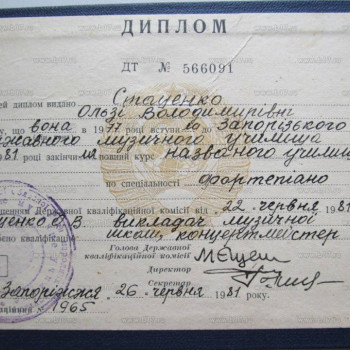 ДИПЛОМ
ДТ № 566091
ей диплом видано Стаценко
Ользі Володимирівні
у, що вона в 1977 році вступила до Запорізького
ржавного музичного училища
81 році закінчила повний курс названого училища
по спеціальності фортепіано
Державної кваліфікаційної комісії від 22 червня 1981
ценко О.В. викладач музичної
кваліфікацію школи, концертмейстер
Голова Державної
кваліфікаційної комісії
Директор
Секретар
Запоріжжя 26 червня 1981 року.
1965